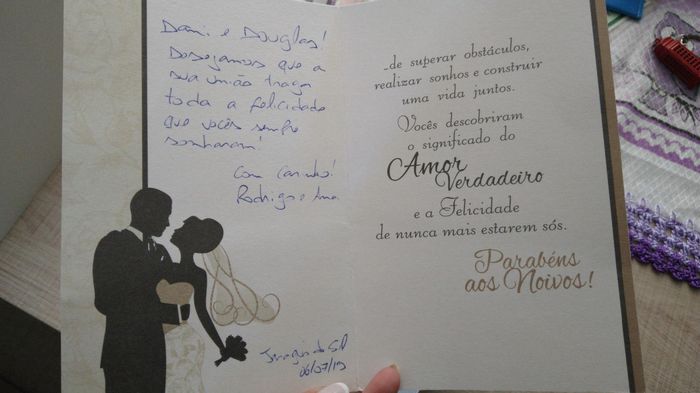 Dani e Douglas!
Desejamos que a
sua união traga
toda a felicidade
que vocês sempre
sonharam!
Com Carinho!
Rodrigo e Ana
Jaraguá do Sul
06/07/19
...de superar obstáculos,
realizar sonhos e construir
uma vida juntos.
Vocês descobriram
o significado do
Amor
Verdadeiro
e a Felicidade
de nunca mais estarem sós.
Parabéns
aos Noivos!